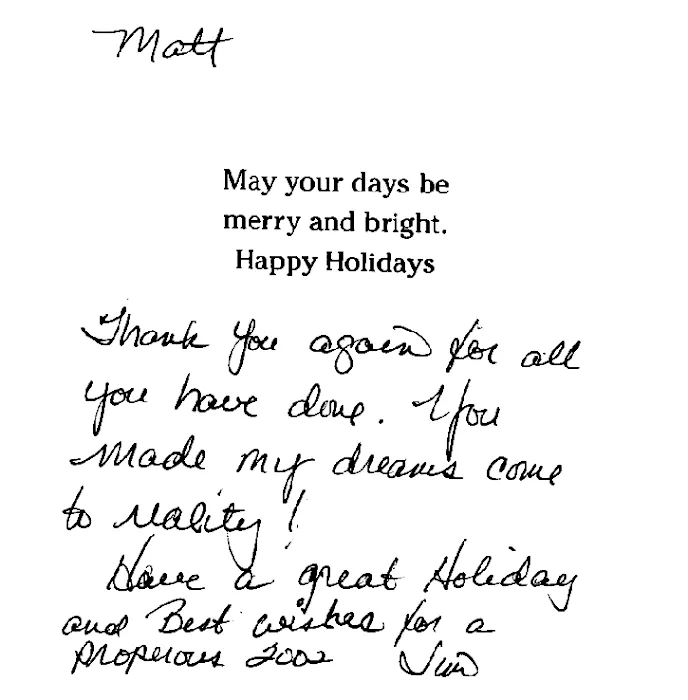 Matt
May your days be
merry and bright.
Happy Holidays
Thank you again for all
you have done. You
made my dreams come
to reality!
Have a great Holiday
and Best wishes for a
properous 2002 Jim